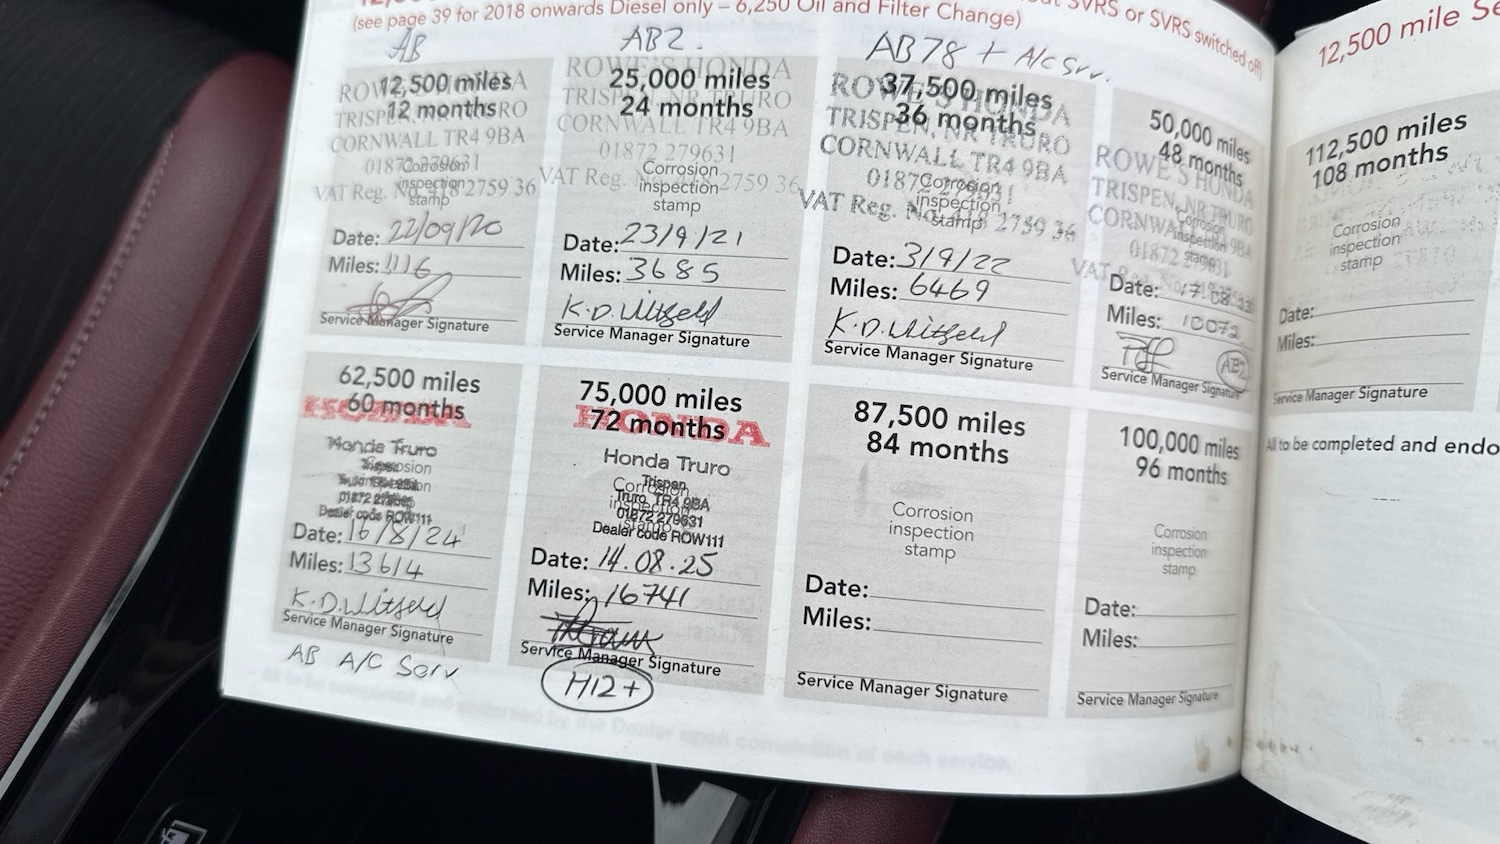 (see page 39 for 2018 onwards Diesel only – 6,250 Oil and Filter Change)
SVRS or SVRS switched off)
AB
12,500 miles
12 months
ROWE'S HONDA
TRISPEN, NR TRURO
CORNWALL TR4 9BA
01872 279631
Corrosion
inspection
stamp
VAT Reg. No. 118 2759 36
Date: 22/09/20
Miles: 1116
Service Manager Signature
AB2.
25,000 miles
24 months
ROWE'S HONDA
TRISPEN, NR TRURO
CORNWALL TR4 9BA
01872 279631
Corrosion
inspection
stamp
VAT Reg. No. 118 2759 36
Date: 23/9/21
Miles: 3685
K.D.Witfeld
Service Manager Signature
AB78 + A/C Srv.
37,500 miles
36 months
ROWE'S HONDA
TRISPEN, NR TRURO
CORNWALL TR4 9BA
01872 279631
Corrosion
inspection
stamp
VAT Reg. No. 118 2759 36
Date: 3/9/22
Miles: 6469
K.D.Witfeld
Service Manager Signature
50,000 miles
48 months
ROWE'S HONDA
TRISPEN, NR TRURO
CORNWALL 9BA
01872 279631
Corrosion
inspection
stamp
VAT Reg.
Date: 17/08/23
Miles: 10072
AB2
Service Manager Signature
62,500 miles
60 months
HONDA
Honda Truro
Corrosion
inspection
Dealer code ROW111
Date: 16/8/24
Miles: 13614
K.D.Witfeld
Service Manager Signature
AB A/C Serv
75,000 miles
72 months
HONDA
Honda Truro
Trispen
Truro TR4 9BA
01872 279631
Corrosion
inspection
stamp
Dealer code ROW111
Date: 14.08.25
Miles: 16741
Service Manager Signature
H12+
87,500 miles
84 months
Corrosion
inspection
stamp
Date:
Miles:
Service Manager Signature
100,000 miles
96 months
Corrosion
inspection
stamp
Date:
Miles:
Service Manager Signature
12,500 mile Se
112,500 miles
108 months
Corrosion
inspection
stamp
Date:
Miles:
Service Manager Signature
All to be completed and endo